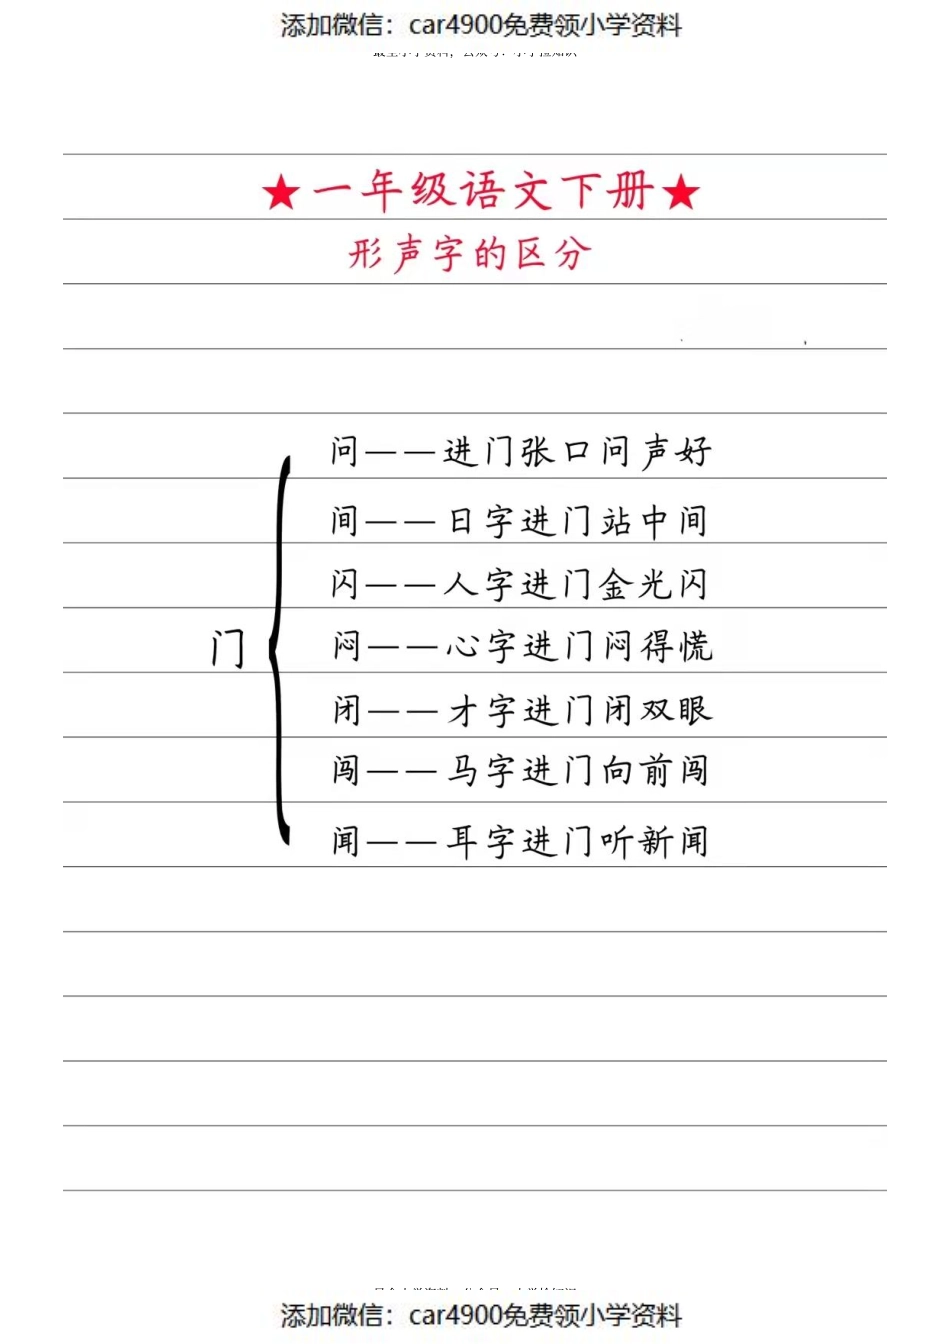 添加微信：car4900免费领小学资料
★一年级语文下册★
形声字的区分
问——进门张口问声好
间——日字进门站中间
闪——人字进门金光闪
门
闷——心字进门闷得慌
闭——才字进门闭双眼
闯——马字进门向前闯
闻——耳字进门听新闻
添加微信：car4900免费领小学资料